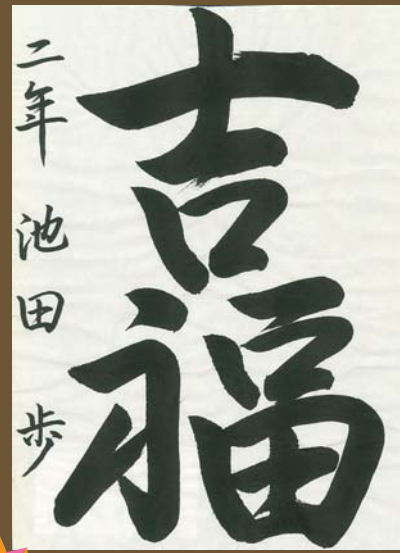 吉福
二年 池田 歩